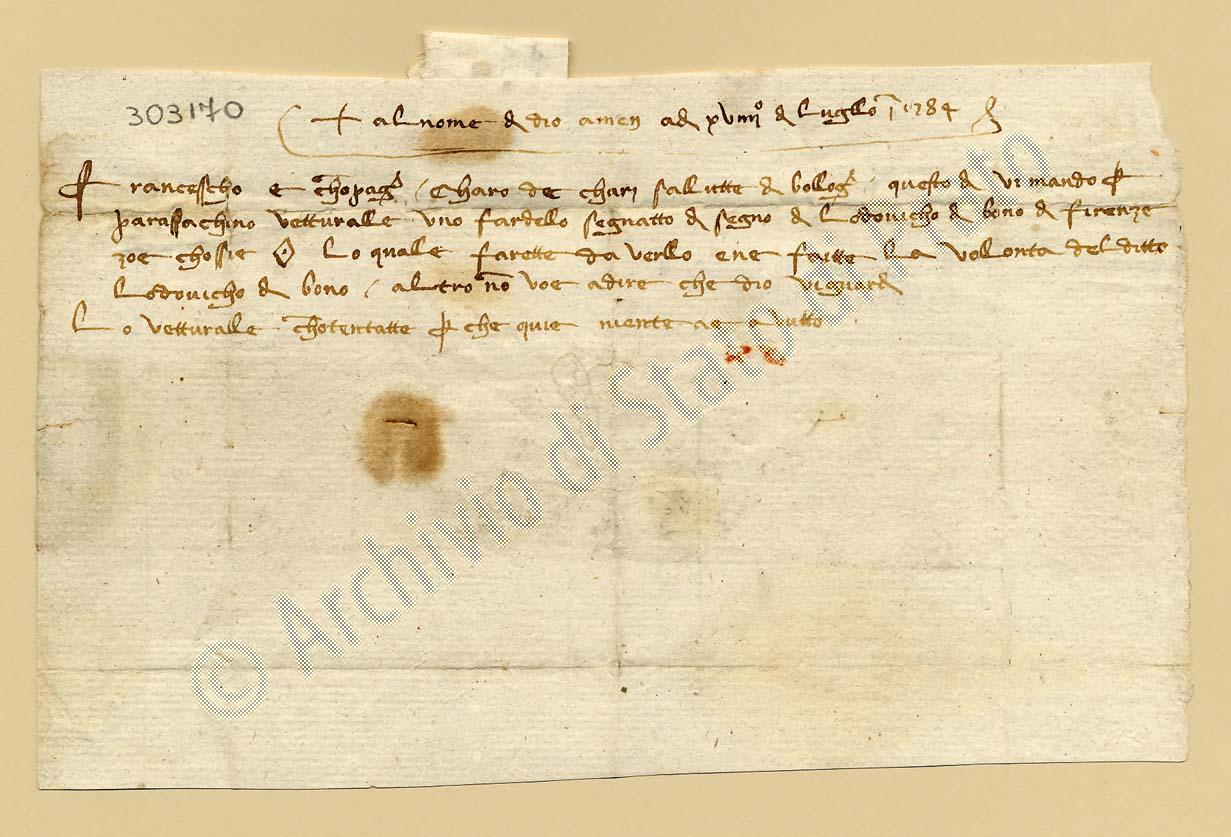 303170
+ al nome d dio amen adj xviiijº d luglio 1384
Francescho e chopag Charo de charj salutte d bollogª questo dj vi mando p
parassachino vetturalle uno fardello segnatto d segno d Lodovicho d bono d firenze
zoe chossie Lo quale farette da verllo e ne fatte La vollonta del ditto
Lodovicho d bono / altro nō voe a dire che dio vi guard
Lo vetturalle chotentatte p che quie niente ae avutto
© Archivio di Stato di Prato